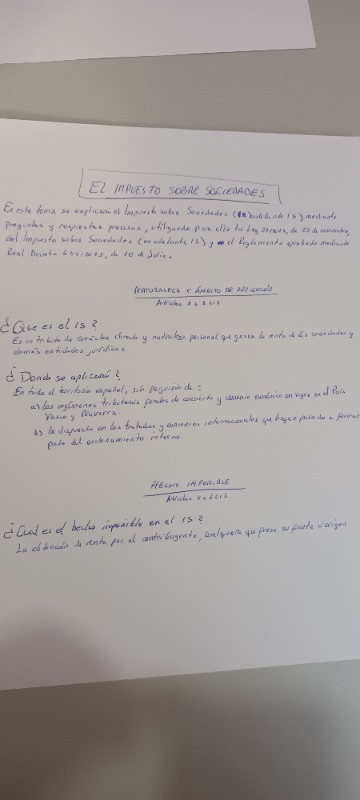 EL IMPUESTO SOBRE SOCIEDADES
En este tema se explicará el Impuesto sobre Sociedades (en adelante IS) mediante
preguntas y respuestas precisas, utilizando para ello la Ley 27/2014, de 27 de noviembre,
del Impuesto sobre Sociedades (en adelante IS) y el Reglamento aprobado mediante
Real Decreto 634/2015, de 10 de Julio.
NATURALEZA Y ÁMBITO DE APLICACIÓN
Artículos 1 a 3 LIS
¿Que es el IS?
Es un tributo de carácter directo y naturaleza personal que grava la renta de las sociedades y
demás entidades jurídicas.
¿Donde se aplicará?
En todo el territorio español, sin perjuicio de:
a) los regímenes tributarios forales de concierto y convenio económico en vigor en el País
Vasco y Navarra.
b) lo dispuesto en los tratados y convenios internacionales que hayan pasado a formar
parte del ordenamiento interno.
HECHO IMPONIBLE
Artículos 4 a 6 LIS
¿Cual es el hecho imponible en el IS?
La obtención de renta por el contribuyente, cualquiera que fuese su fuente u origen